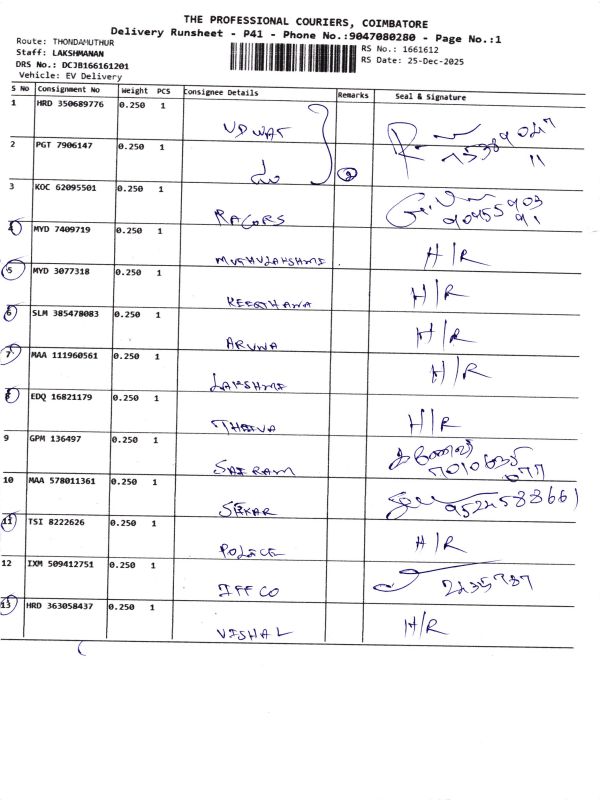 THE PROFESSIONAL COURIERS, COIMBATORE
Delivery Runsheet - P41 - Phone No.:9047080280 - Page No.:1
Route: THONDAMUTHUR
RS No.: 1661612
Staff: LAKSHMANAN
RS Date: 25-Dec-2025
DRS No.: DCJB166161201
Vehicle: EV Delivery
S No Consignment No Weight PCS Consignee Details Remarks Seal & Signature
1 HRD 350689776 0.250 1
UDWAT
2 PGT 7906147 0.250 1
2
11
3 KOC 62095501 0.250 1
RAGORS
91
4 MYD 7409719 0.250 1
MUTHULAKSHMI H/R
5 MYD 3077318 0.250 1
KEERTHANA H/R
6 SLM 385478083 0.250 1
ARUNA H/R
7 MAA 111960561 0.250 1
LAKSHMI H/R
8 EDQ 16821179 0.250 1
THEEVA H/R
9 GPM 136497 0.250 1
SAIRAM 7010635
077
10 MAA 578011361 0.250 1
SEKAR 9524588661
11 TSI 8222626 0.250 1
POLICE H/R
12 IXM 509412751 0.250 1
IFFCO 2235787
13 HRD 363058437 0.250 1
VISHAL H/R